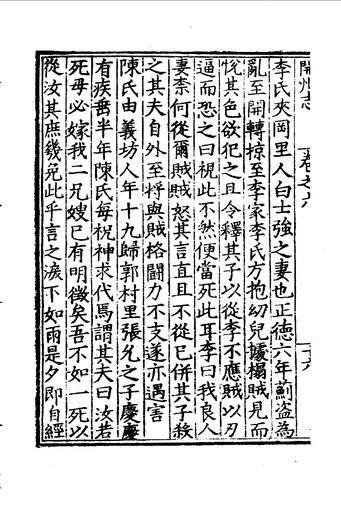 開州志
卷之六
十六
李氏夾岡里人白士強之妻也正德六年薊盗為
亂至開轉掠至李家李氏方抱幼兒據榻賊見而
悅其色欲犯之且令釋其子以從李不應賊以刃
逼而恐之曰視此不然便當死此耳李曰我良人
妻柰何從爾賊賊怒其言直且不從已併其子殺
之其夫自外至將與賊格鬬力不支遂亦遇害
陳氏由義坊人年十九歸郭村里張允之子慶慶
有疾嵗半年陳氏每祝神求代焉謂其夫曰汝若
死毋必嫁我二兄嫂已有明徵矣吾不如一死以
從汝其庶幾免此乎言之淚下如雨是夕即自經